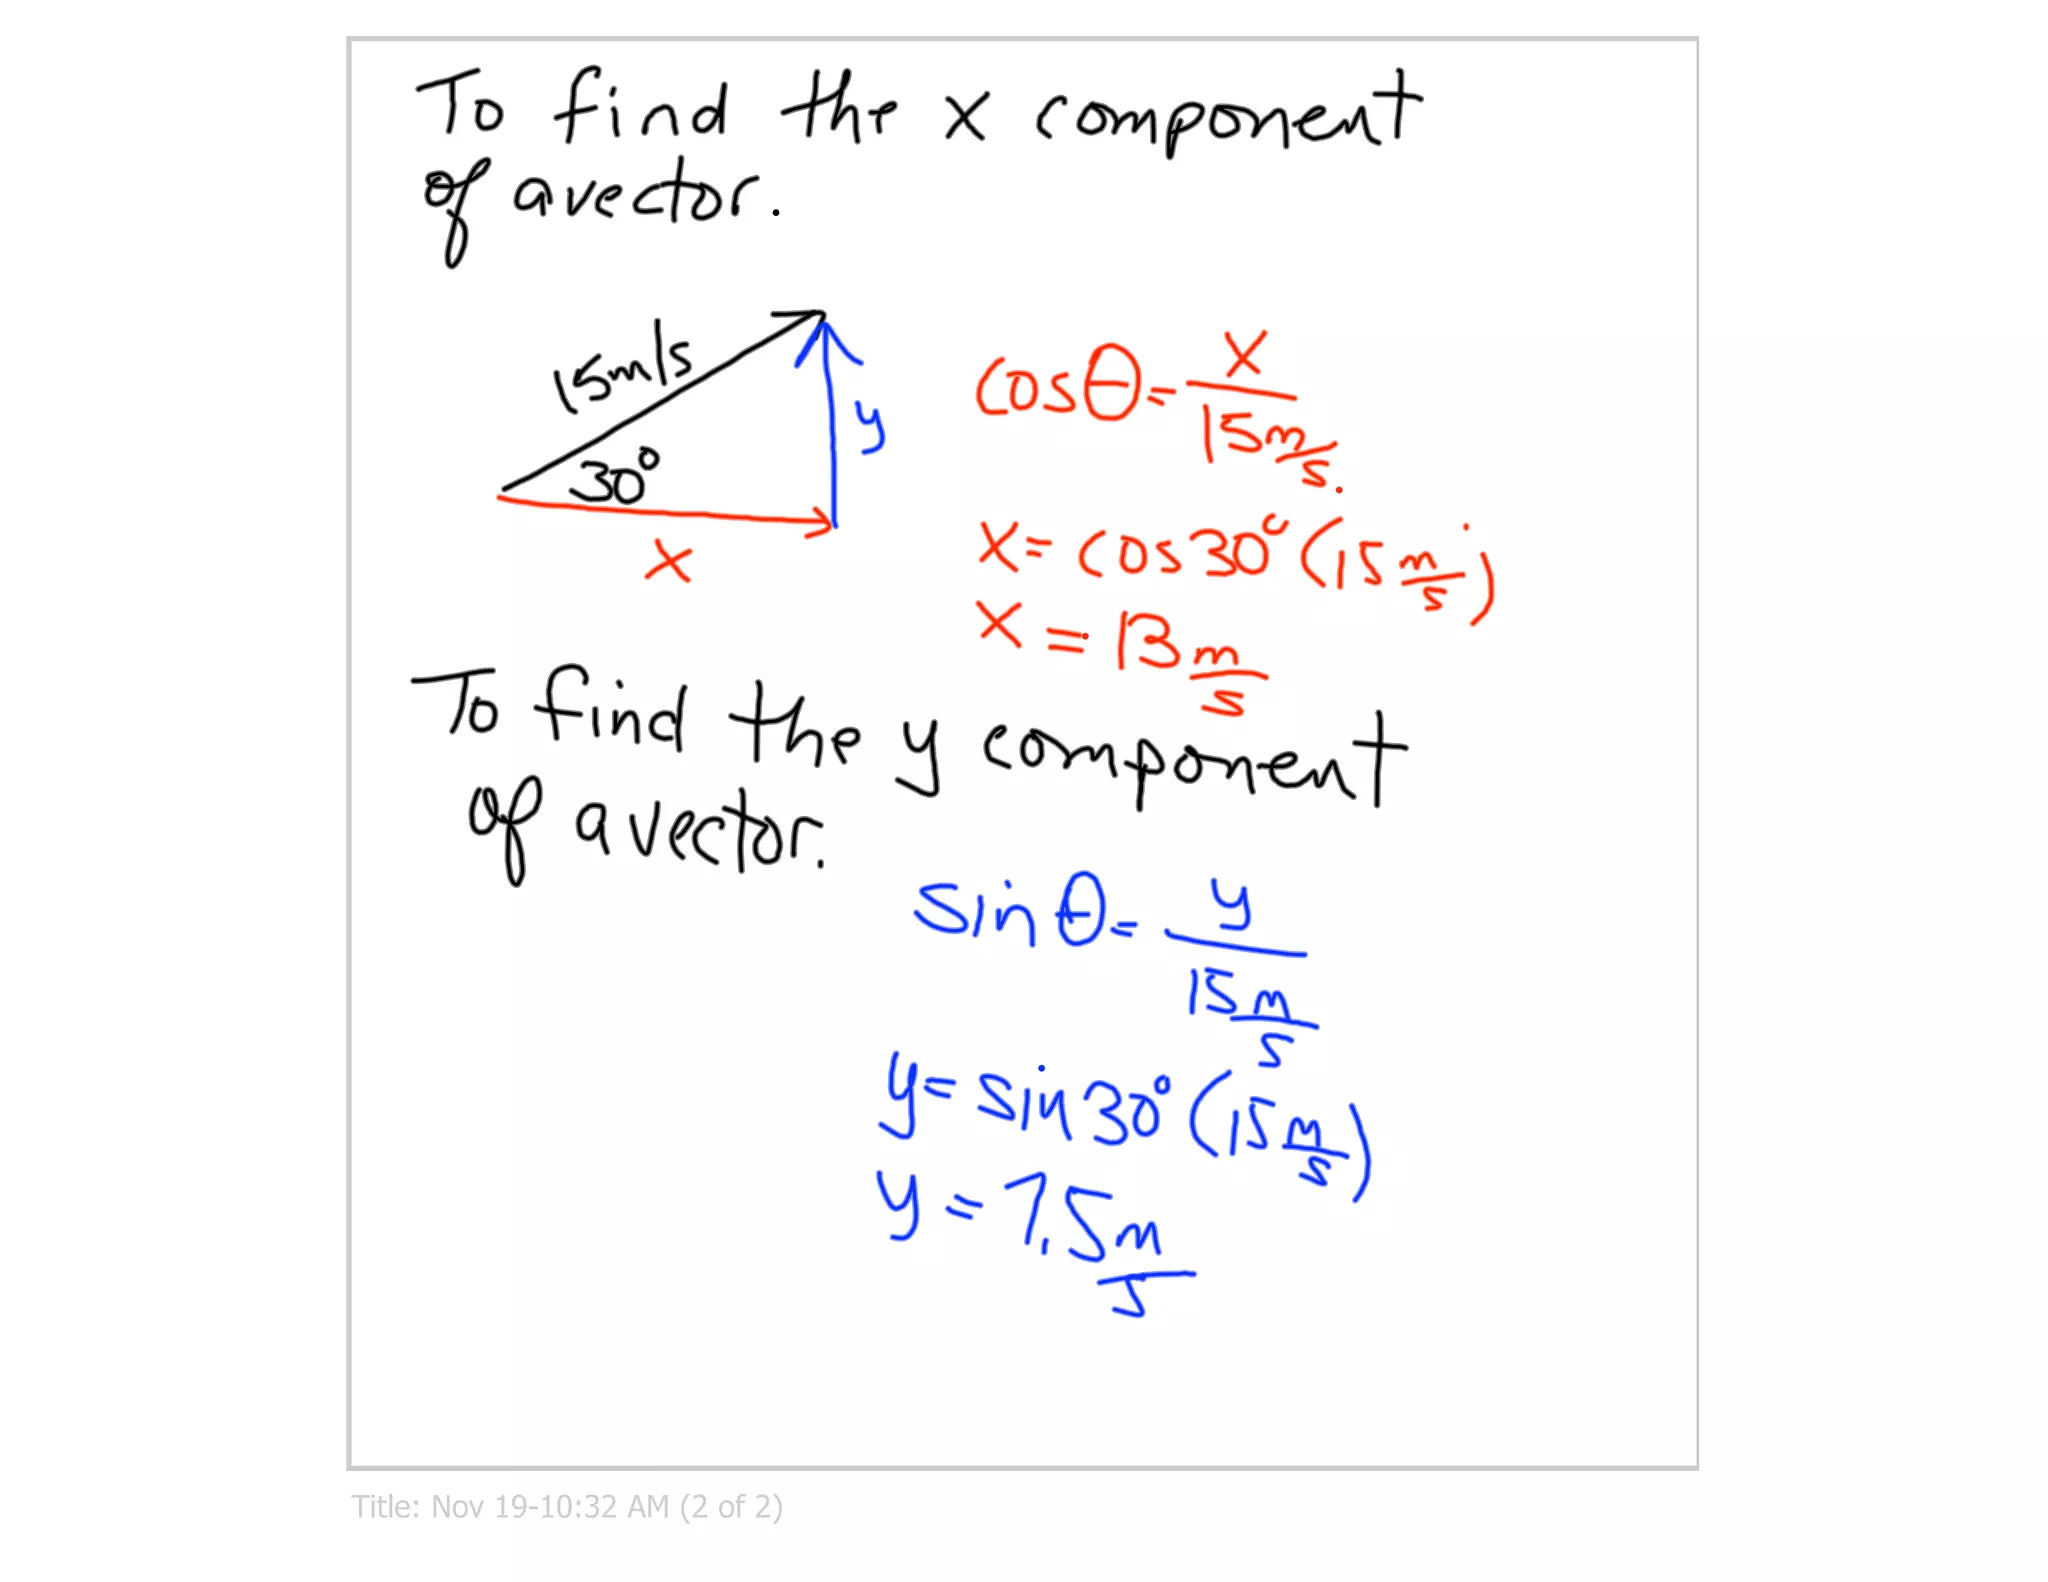 To find the x component
of a vector.
15m/s
30°
y
x
cosθ = x/15 m/s
x = cos30° (15 m/s)
x = 13 m/s
To find the y component
of a vector.
sinθ = y/15 m/s
y = sin30° (15 m/s)
y = 7.5 m/s
Title: Nov 19-10:32 AM (2 of 2)